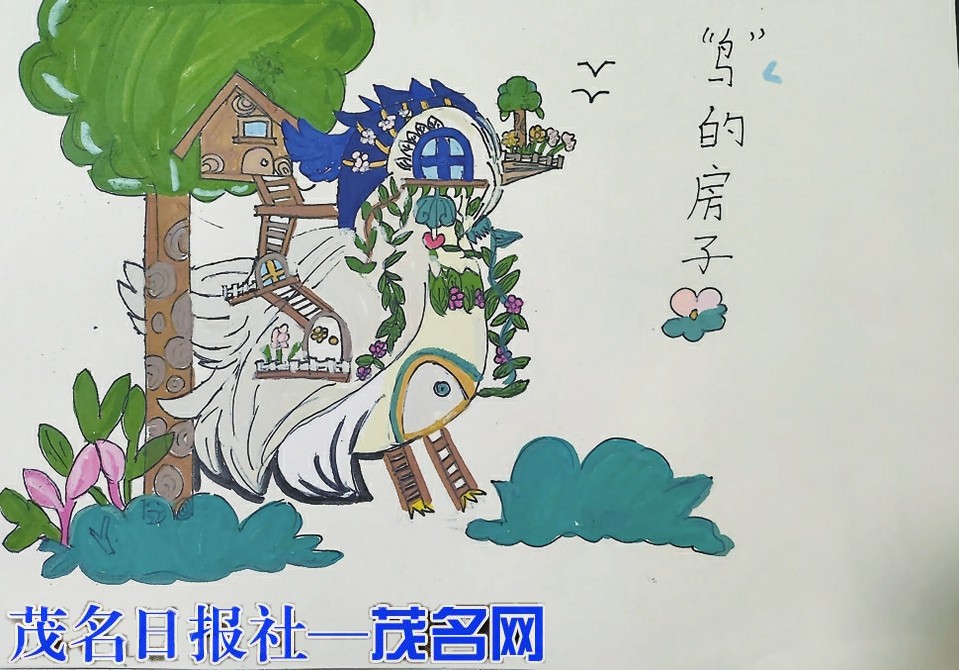 “鸟”的房子
茂名日报社—茂名网